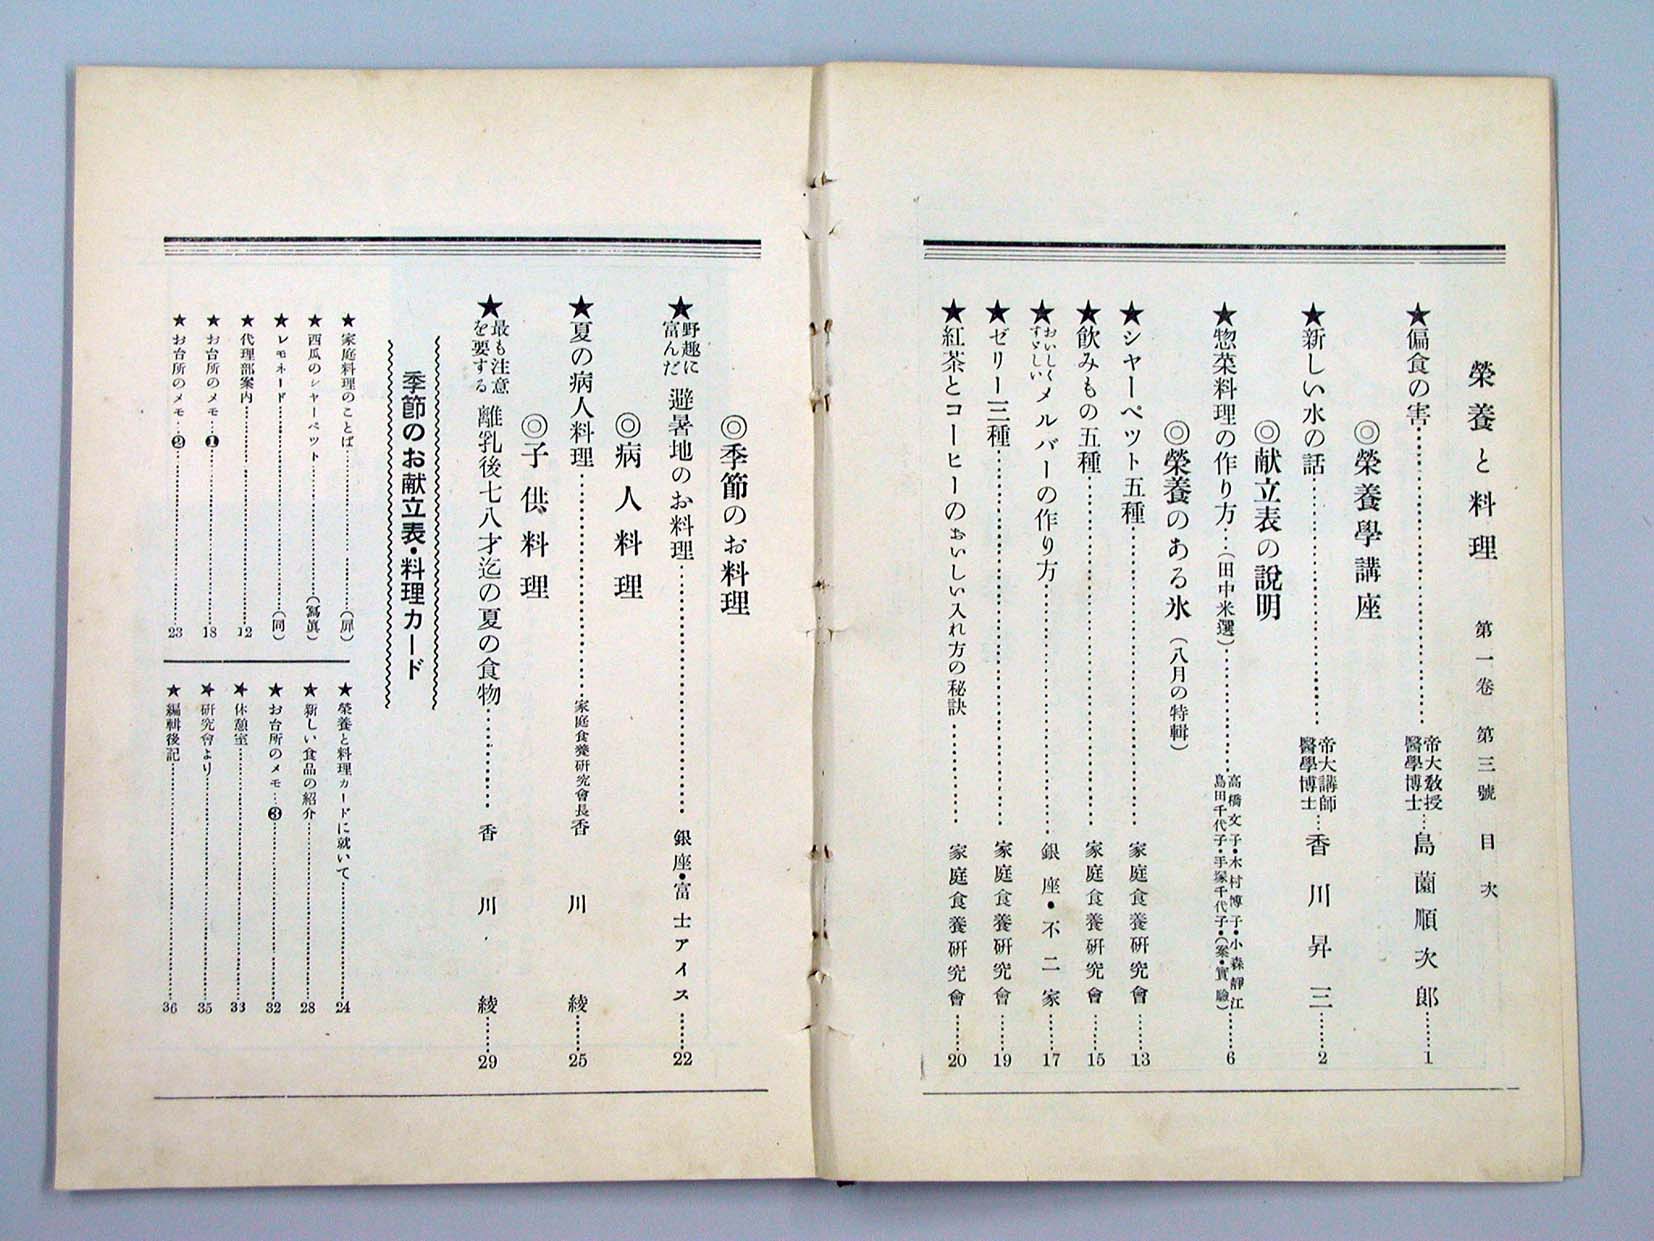 榮養と料理　第一卷　第三號　目次
★偏食の害……帝大教授醫學博士…島薗順次郎……1
◎榮養學講座
★新しい水の話……帝大講師醫學博士…香川昇三……2
◎献立表の說明
★惣菜料理の作り方…(田中米選)……高橋文子・木村博子・小森靜江島田千代子・手塚千代子・(案・實驗)……6
◎榮養のある氷（八月の特輯）
★シャーペツト五種……家庭食養研究會……13
★飲みもの五種……家庭食養研究會……15
★おいしくすゞしいメルバーの作り方……銀座・不二家……17
★ゼリー三種……家庭食養研究會……19
★紅茶とコーヒーのおいしい入れ方の秘訣……家庭食養研究會……20
◎季節のお料理
★野趣に富んだ避暑地のお料理……銀座・富士アイス……22
◎病人料理
★夏の病人料理……家庭食養研究會長香川綾……25
◎子供料理
★最も注意を要する離乳後七八才迄の夏の食物……香川綾……29
季節のお献立表・料理カード
★家庭料理のことば……(扉)
★西瓜のシャーペツト……(寫眞)
★レモネード……(同)
★代理部案内……12
★お台所のメモ…❶……18
★お台所のメモ…❷……23
★榮養と料理カードに就いて……24
★新しい食品の紹介……28
★お台所のメモ…❸……32
★休憩室……33
★研究會より……35
★編輯後記……36